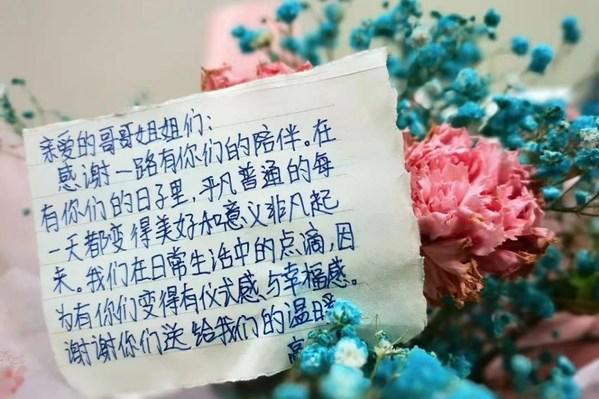 亲爱的哥哥姐姐们：
感谢一路有你们的陪伴。在
有你们的日子里，平凡普通的每
一天都变得美好和意义非凡起
来。我们在日常生活中的点滴，因
为有你们变得有仪式感与幸福感。
谢谢你们送给我们的温暖